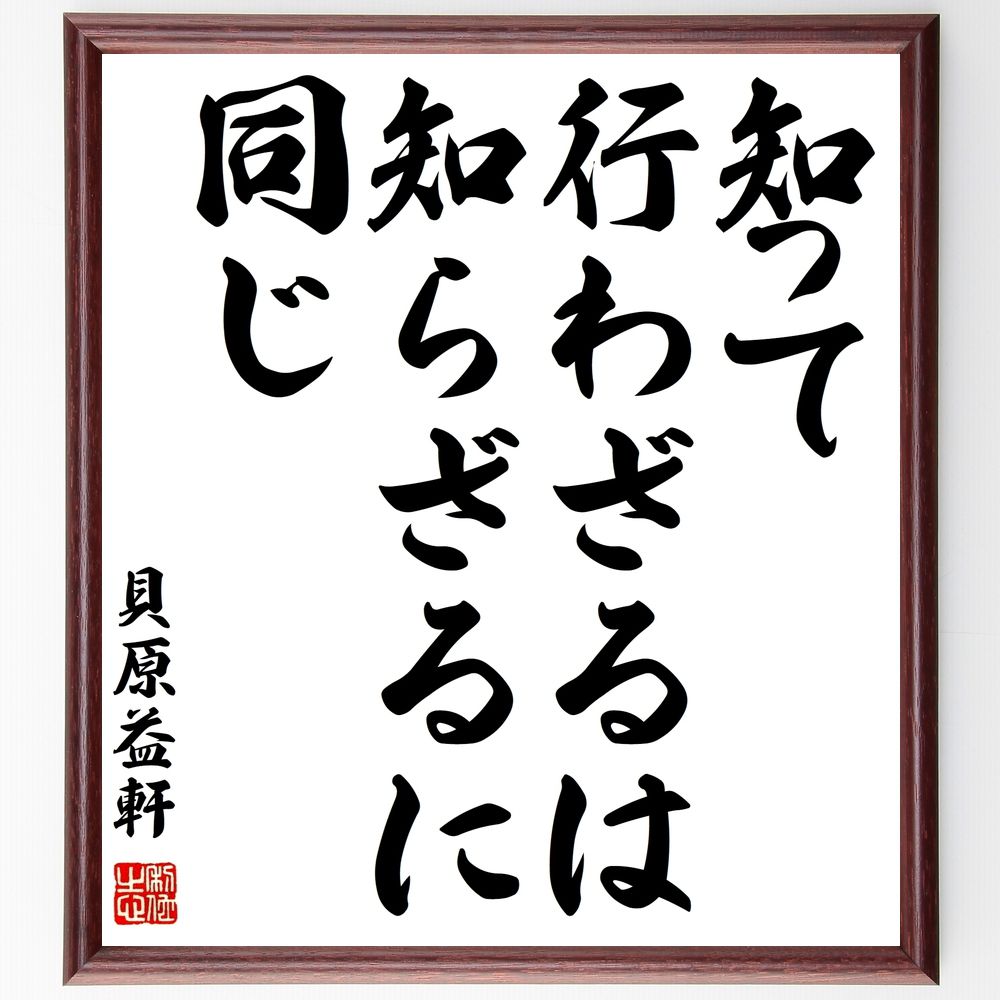 知って
行わざるは
知らざるに
同じ
貝原益軒